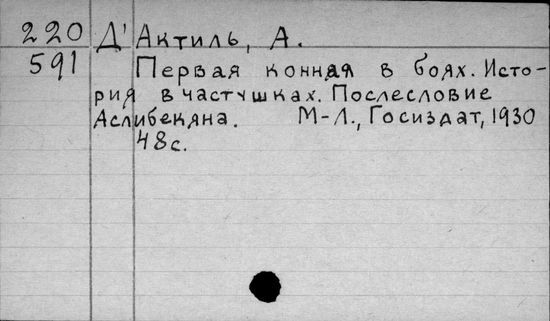 220 Д'Актиль, А.
591 Первая конная в боях. Исто-
рия в частушках. Послесловие
Аслибекяна. М-Л., Госиздат, 1930
48с.